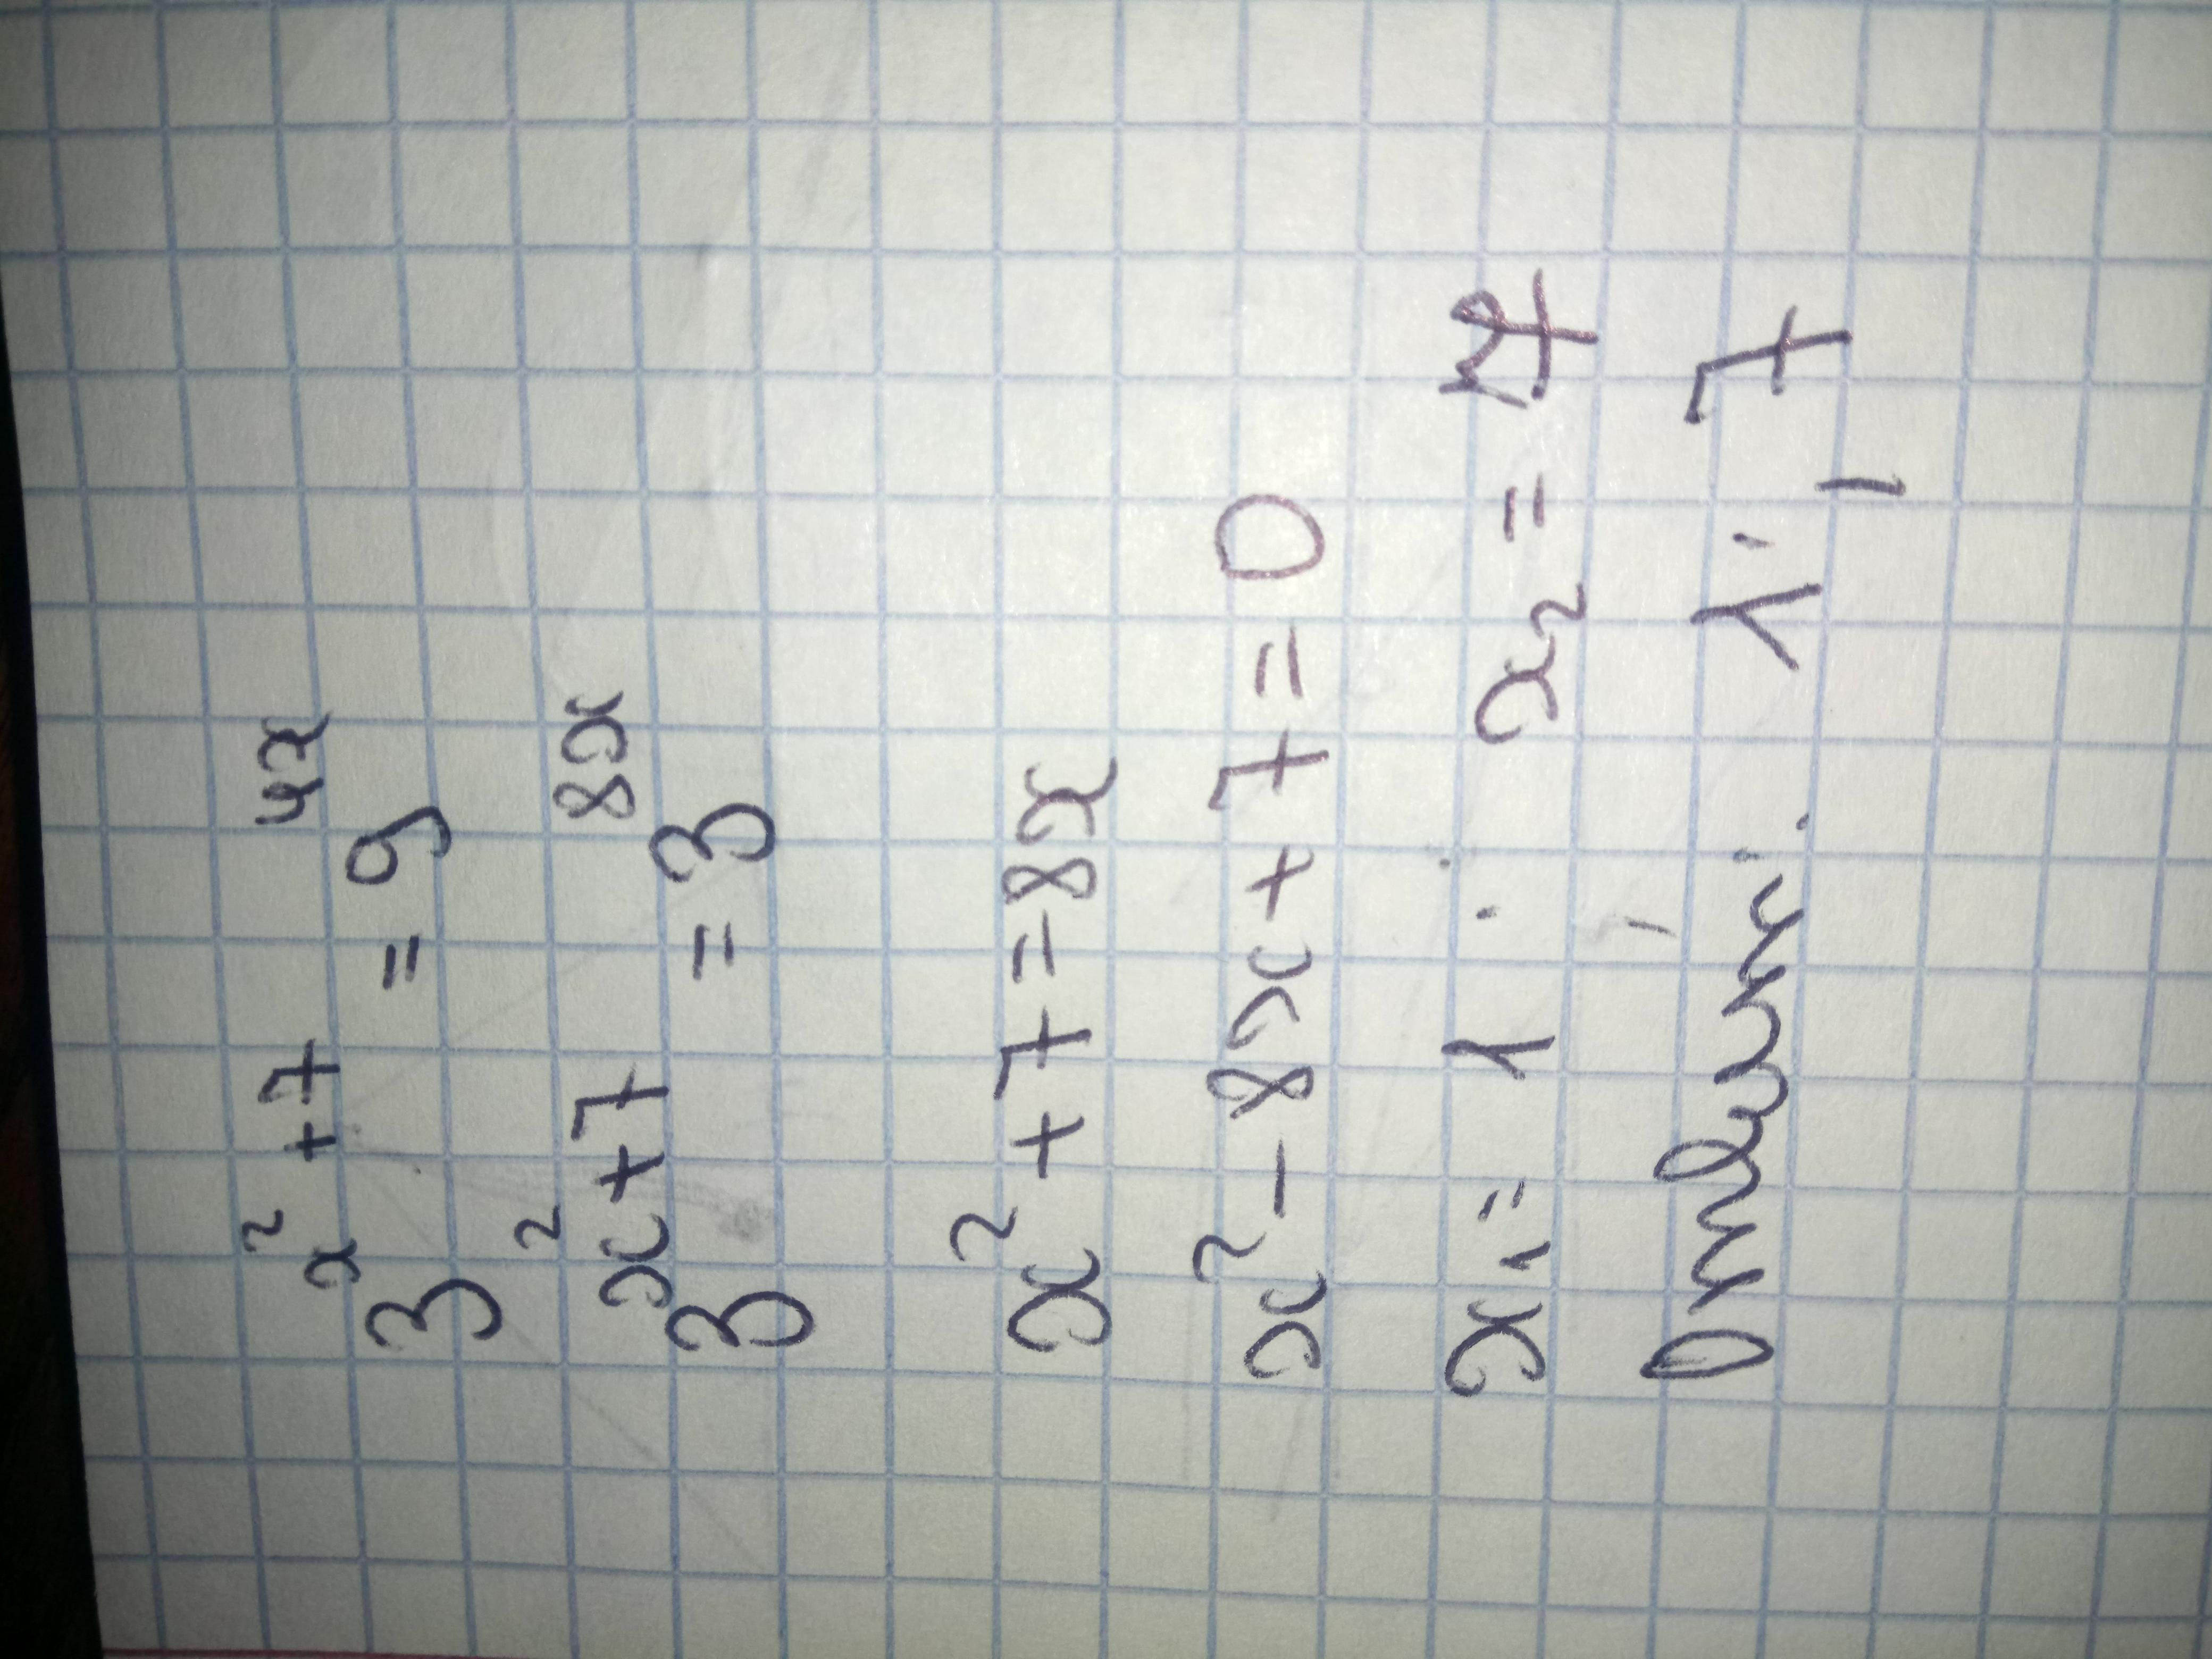 3^(x²+7) = 9^(4x)
3^(x²+7) = 3^(8x)
x²+7=8x
x²-8x+7=0
x₁=1; x₂=7
Ответ: 1; 7